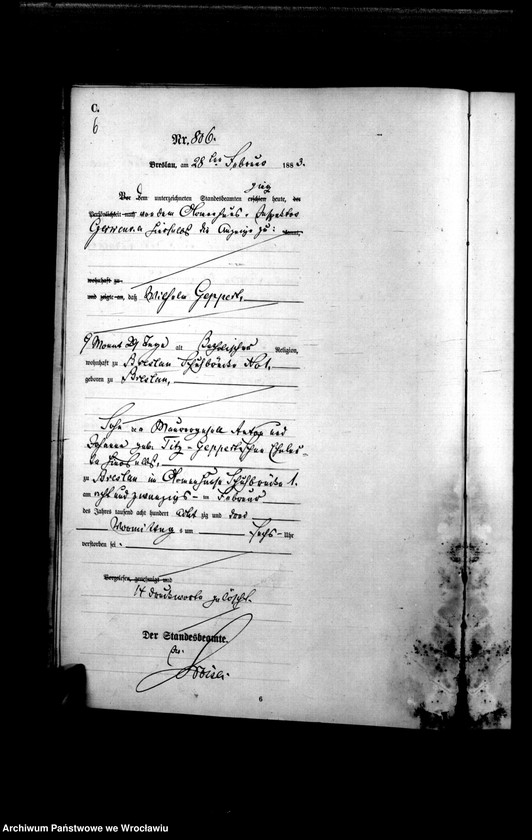 C.
6
Nr. 806.
Breslau, am 28 ten Februar 1883.
ging
Vor dem unterzeichneten Standesbeamten erschien heute, der
Persönlichkeit nach von dem Inspektor
die Anzeige zu: kannt,
wohnhaft zu
und zeigte an, daß Wilhelm Geppert,
9 Monat 29 Tage alt katholischer Religion,
wohnhaft zu Breslau Schuhbrücke No 1.
geboren zu Breslau,
Sohn Maurergesell und
geb. Titz - Geppert'schen
hierselbst,
zu Breslau im Schuhbrücke 1.
am acht und zwanzigs-ten Februar
des Jahres tausend acht hundert acht zig und drei
Vormittag s um sechs Uhr
verstorben sei.
Vorgelesen, genehmigt und
14 Druckworte gelöscht.
Der Standesbeamte.
6
Archiwum Państwowe we Wrocławiu